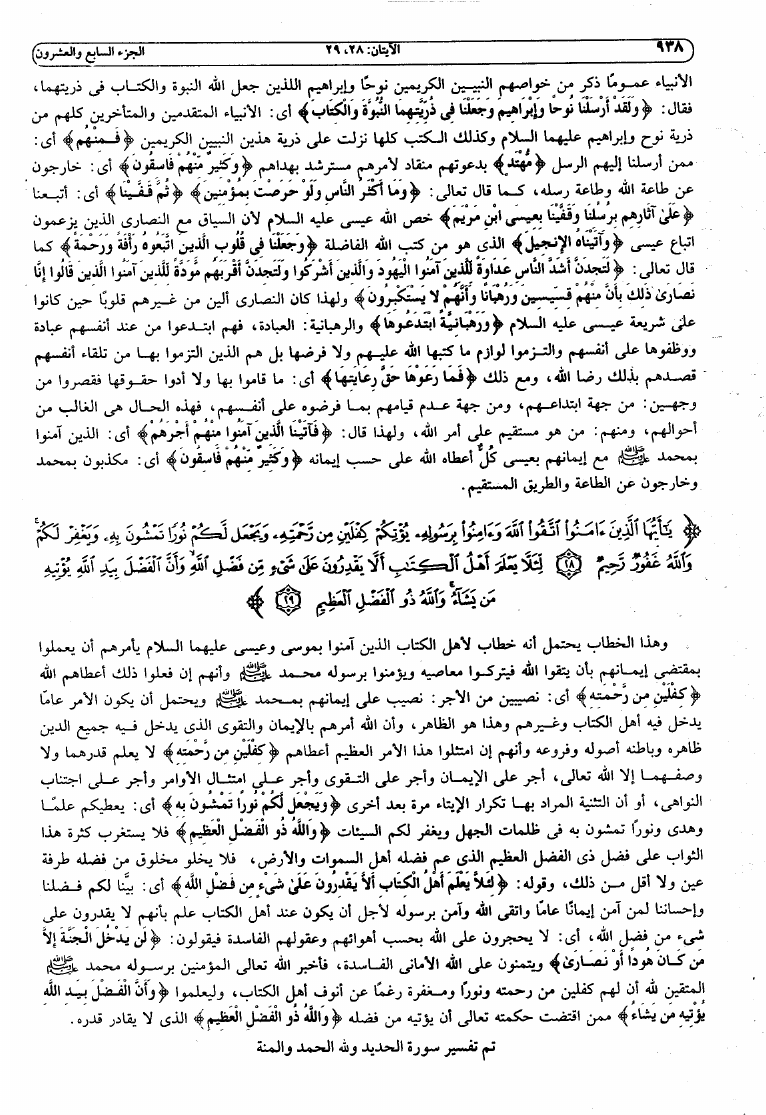 ٩٣٨ الآيتان: ٢٨، ٢٩ الجزء السابع والعشرون
الأنبياء عمومًا ذكر من خواصهم النبيين الكريمين نوحًا وإبراهيم اللذين جعل الله النبوة والكتاب فى ذريتهما،
فقال: ﴿وَلَقَدْ أَرْسَلْنَا نُوحًا وَإِبْرَاهِيمَ وَجَعَلْنَا فِى ذُرِّيَّتِهِمَا النُّبُوَّةَ وَالْكِتَابَ﴾ أى: الأنبياء المتقدمين والمتأخرين كلهم من
ذرية نوح وإبراهيم عليهما السلام وكذلك الكتب كلها نزلت على ذرية هذين النبيين الكريمين ﴿فَمِنْهُم﴾ أى:
ممن أرسلنا إليهم الرسل ﴿مُّهْتَدٍ﴾ بدعوتهم منقاد لأمرهم مسترشد بهداهم ﴿وَكَثِيرٌ مِّنْهُمْ فَاسِقُونَ﴾ أى: خارجون
عن طاعة الله وطاعة رسله، كما قال تعالى: ﴿وَمَا أَكْثَرُ النَّاسِ وَلَوْ حَرَصْتَ بِمُؤْمِنِينَ﴾ ﴿ثُمَّ قَفَّيْنَا﴾ أى: أتبعنا
﴿عَلَىٰ آثَارِهِم بِرُسُلِنَا وَقَفَّيْنَا بِعِيسَى ابْنِ مَرْيَمَ﴾ خص الله عيسى عليه السلام لأن السياق مع النصارى الذين يزعمون
اتباع عيسى ﴿وَآتَيْنَاهُ الإِنجِيلَ﴾ الذى هو من كتب الله الفاضلة ﴿وَجَعَلْنَا فِى قُلُوبِ الَّذِينَ اتَّبَعُوهُ رَأْفَةً وَرَحْمَةً﴾ كما
قال تعالى: ﴿لَتَجِدَنَّ أَشَدَّ النَّاسِ عَدَاوَةً لِّلَّذِينَ آمَنُوا الْيَهُودَ وَالَّذِينَ أَشْرَكُوا وَلَتَجِدَنَّ أَقْرَبَهُم مَّوَدَّةً لِّلَّذِينَ آمَنُوا الَّذِينَ قَالُوا إِنَّا
نَصَارَىٰ ذَلِكَ بِأَنَّ مِنْهُمْ قِسِّيسِينَ وَرُهْبَانًا وَأَنَّهُمْ لا يَسْتَكْبِرُونَ﴾ ولهذا كان النصارى ألين من غيرهم قلوبًا حين كانوا
على شريعة عيسى عليه السلام ﴿وَرَهْبَانِيَّةً ابْتَدَعُوهَا﴾ والرهبانية: العبادة، فهم ابتدعوا من عند أنفسهم عبادة
ووظفوها على أنفسهم والتزموا لوازم ما كتبها الله عليهم ولا فرضها بل هم الذين التزموا بها من تلقاء أنفسهم
قصدهم بذلك رضا الله، ومع ذلك ﴿فَمَا رَعَوْهَا حَقَّ رِعَايَتِهَا﴾ أى: ما قاموا بها ولا أدوا حقوقها فقصروا من
وجهين: من جهة ابتداعهم، ومن جهة عدم قيامهم بما فرضوه على أنفسهم، فهذه الحال هى الغالب من
أحوالهم، ومنهم: من هو مستقيم على أمر الله، ولهذا قال: ﴿فَآتَيْنَا الَّذِينَ آمَنُوا مِنْهُمْ أَجْرَهُمْ﴾ أى: الذين آمنوا
بمحمد ﷺ مع إيمانهم بعيسى كُلٌّ أعطاه الله على حسب إيمانه ﴿وَكَثِيرٌ مِّنْهُمْ فَاسِقُونَ﴾ أى: مكذبون بمحمد
وخارجون عن الطاعة والطريق المستقيم.
﴿يَٰٓأَيُّهَا ٱلَّذِينَ ءَامَنُوا۟ ٱتَّقُوا۟ ٱللَّهَ وَءَامِنُوا۟ بِرَسُولِهِۦ يُؤْتِكُمْ كِفْلَيْنِ مِن رَّحْمَتِهِۦ وَيَجْعَل لَّكُمْ نُورًا تَمْشُونَ بِهِۦ وَيَغْفِرْ لَكُمْ ۚ
وَٱللَّهُ غَفُورٌ رَّحِيمٌ ٢٨ لِّئَلَّا يَعْلَمَ أَهْلُ ٱلْكِتَٰبِ أَلَّا يَقْدِرُونَ عَلَىٰ شَىْءٍ مِّن فَضْلِ ٱللَّهِ ۙ وَأَنَّ ٱلْفَضْلَ بِيَدِ ٱللَّهِ يُؤْتِيهِ
مَن يَشَآءُ ۚ وَٱللَّهُ ذُو ٱلْفَضْلِ ٱلْعَظِيمِ ٢٩﴾
وهذا الخطاب يحتمل أنه خطاب لأهل الكتاب الذين آمنوا بموسى وعيسى عليهما السلام يأمرهم أن يعملوا
بمقتضى إيمانهم بأن يتقوا الله فيتركوا معاصيه ويؤمنوا برسوله محمد ﷺ وأنهم إن فعلوا ذلك أعطاهم الله
﴿كِفْلَيْنِ مِن رَّحْمَتِهِ﴾ أى: نصيبين من الأجر: نصيب على إيمانهم بمحمد ﷺ ويحتمل أن يكون الأمر عامًا
يدخل فيه أهل الكتاب وغيرهم وهذا هو الظاهر، وأن الله أمرهم بالإيمان والتقوى الذى يدخل فيه جميع الدين
ظاهره وباطنه أصوله وفروعه وأنهم إن امتثلوا هذا الأمر العظيم أعطاهم ﴿كِفْلَيْنِ مِن رَّحْمَتِهِ﴾ لا يعلم قدرهما ولا
وصفهما إلا الله تعالى، أجر على الإيمان وأجر على التقوى وأجر على امتثال الأوامر وأجر على اجتناب
النواهى، أو أن التثنية المراد بها تكرار الإيتاء مرة بعد أخرى ﴿وَيَجْعَل لَّكُمْ نُورًا تَمْشُونَ بِهِ﴾ أى: يعطيكم علمًا
وهدى ونورًا تمشون به فى ظلمات الجهل ويغفر لكم السيئات ﴿وَاللَّهُ ذُو الْفَضْلِ الْعَظِيمِ﴾ فلا يستغرب كثرة هذا
الثواب على فضل ذى الفضل العظيم الذى عم فضله أهل السموات والأرض، فلا يخلو مخلوق من فضله طرفة
عين ولا أقل من ذلك، وقوله: ﴿لِئَلاَّ يَعْلَمَ أَهْلُ الْكِتَابِ أَلاَّ يَقْدِرُونَ عَلَىٰ شَىْءٍ مِّن فَضْلِ اللَّهِ﴾ أى: بيَّنا لكم فضلنا
وإحساننا لمن آمن إيمانًا عامًا واتقى الله وآمن برسوله لأجل أن يكون عند أهل الكتاب علم بأنهم لا يقدرون على
شىء من فضل الله، أى: لا يحجرون على الله بحسب أهوائهم وعقولهم الفاسدة فيقولون: ﴿لَن يَدْخُلَ الْجَنَّةَ إِلاَّ
مَن كَانَ هُودًا أَوْ نَصَارَىٰ﴾ ويتمنون على الله الأمانى الفاسدة، فأخبر الله تعالى المؤمنين برسوله محمد ﷺ
المتقين لله أن لهم كفلين من رحمته ونورًا ومغفرة رغمًا عن أنوف أهل الكتاب، وليعلموا ﴿وَأَنَّ الْفَضْلَ بِيَدِ اللَّهِ
يُؤْتِيهِ مَن يَشَاءُ﴾ ممن اقتضت حكمته تعالى أن يؤتيه من فضله ﴿وَاللَّهُ ذُو الْفَضْلِ الْعَظِيمِ﴾ الذى لا يقادر قدره.
تم تفسير سورة الحديد ولله الحمد والمنة